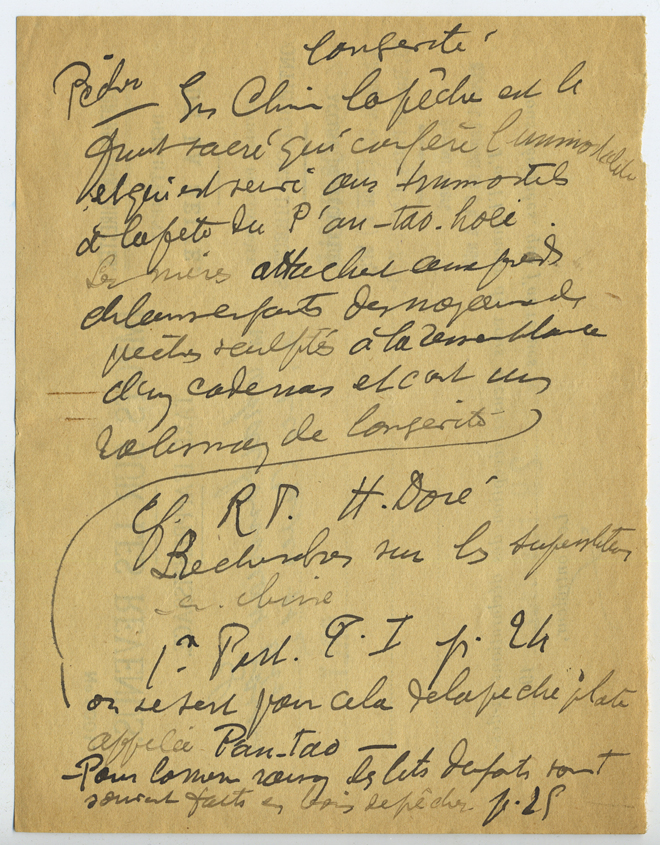 longévité
Pêcher En Chine la pêche est le
fruit sacré qui confère l'immortalité
et qui est servi aux Immortels
à la fête du P'an-tao-hoei.
Les mères attachent aux pieds
de leurs enfants des noyaux de
pêches sculptés à la ressemblance
d'un cadenas et c'est un
talisman de longévité
Cf. R. P. H. Doré
Recherches sur les superstitions
en Chine
1re Part. T. I p. 24
on se sert pour cela de la pêche plate
appelée Pan-tao
- Pour la même raison les lits d'enfants sont
souvent faits en bois de pêcher p. 25